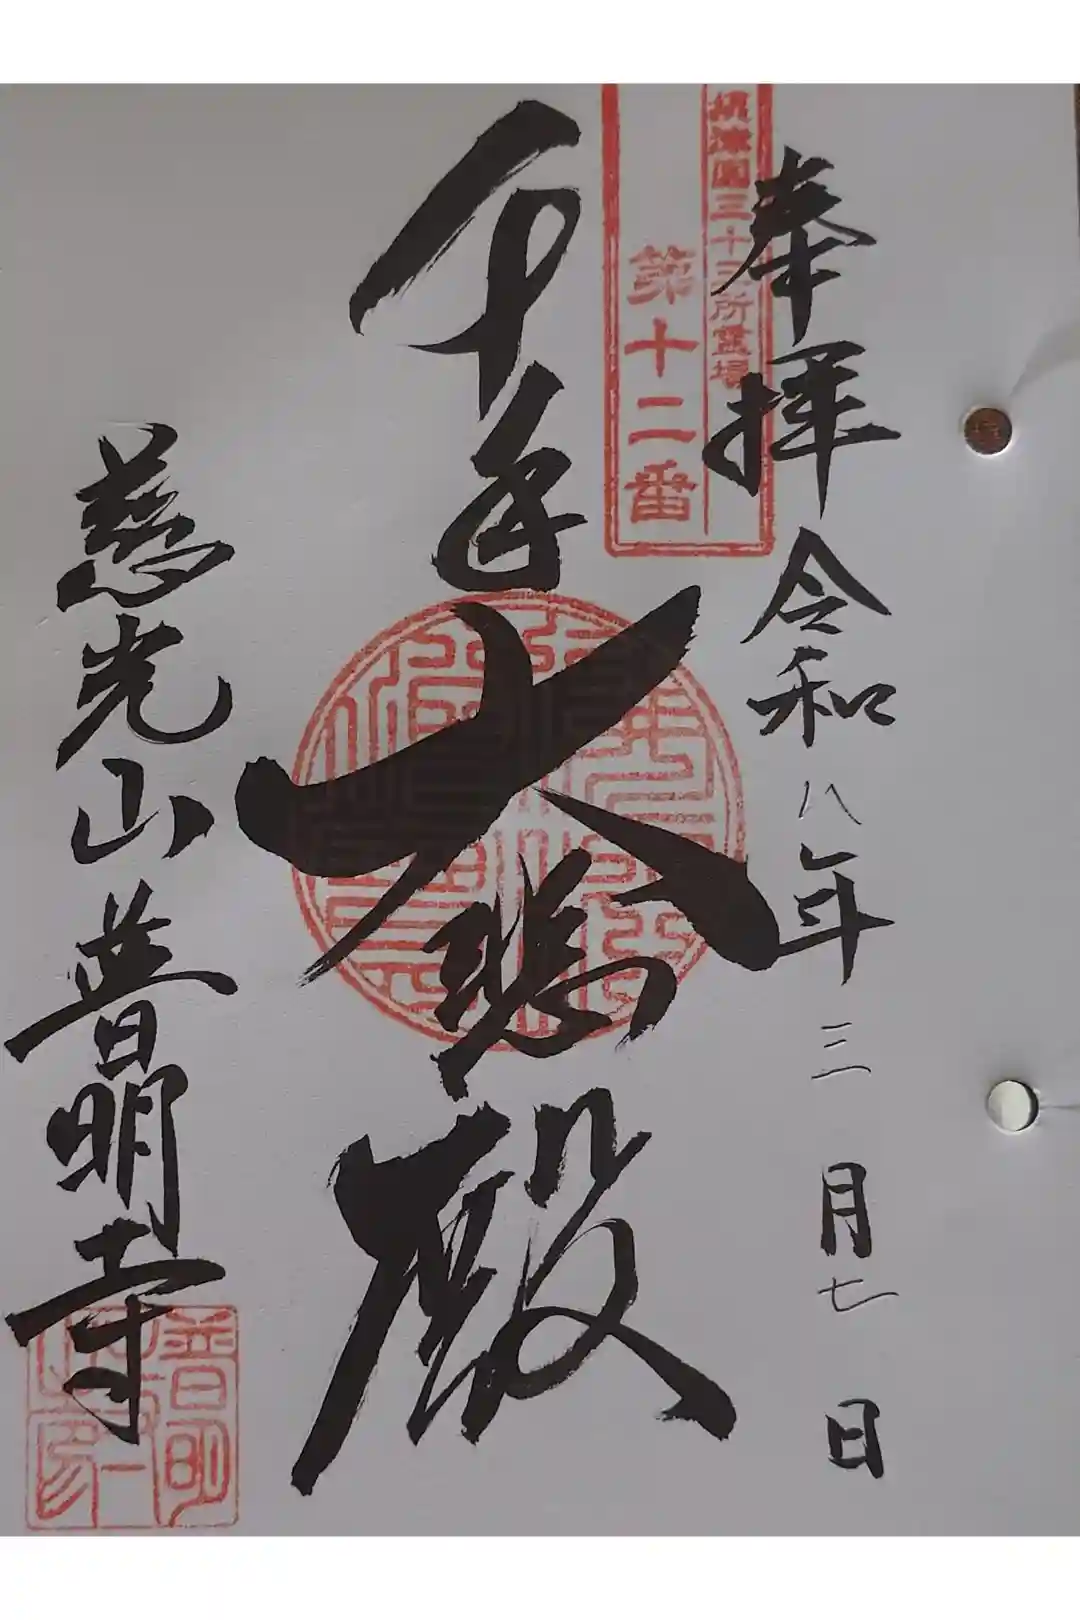 奉拝 令和八年三月七日
摂津国三十三所霊場
第十二番
千手大悲殿
慈光山普明寺